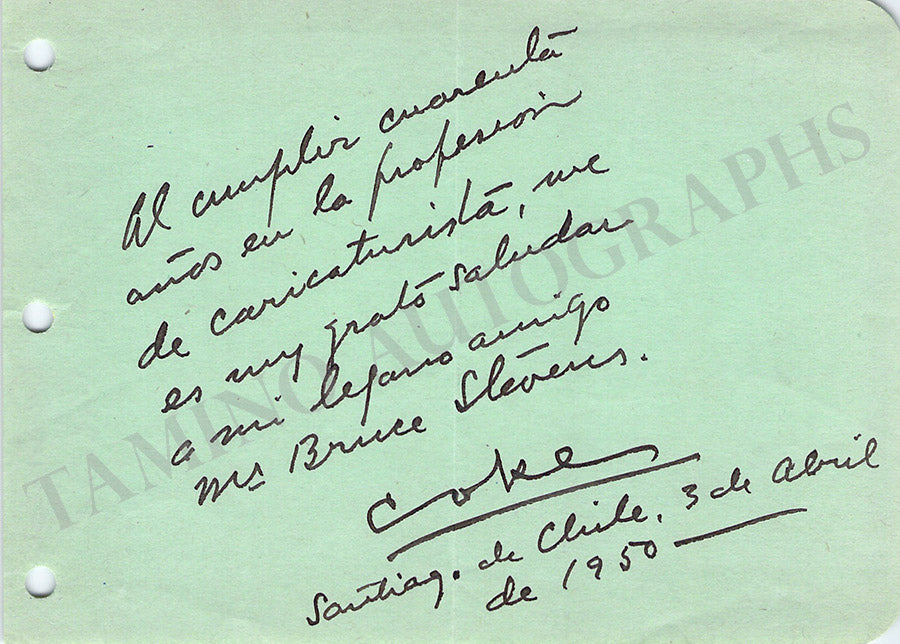 Al cumplir cuarenta
años en la profesión
de caricaturista, me
es muy grato saludar
a mi lejano amigo
Mr. Bruce Stevens.
Coke
Santiago. de Chile, 3 de Abril
de 1950
TAMINO AUTOGRAPHS